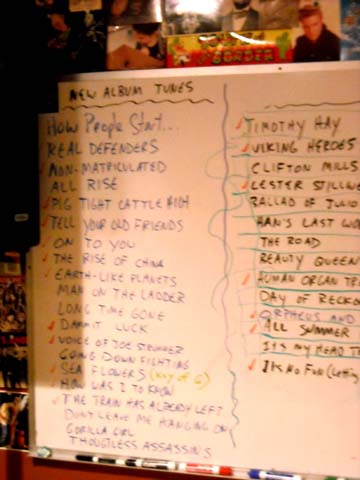 NEW ALBUM TUNES
How People Start...
REAL DEFENDERS
NON-MATRICULATED
ALL RISE
PIG TIGHT CATTLE HIGH
TELL YOUR OLD FRIENDS
ON TO YOU
THE RISE OF CHINA
EARTH-LIKE PLANETS
MAN ON THE LADDER
LONG TIME GONE
DAMMIT LUCK
VOICE OF JOE STRUMMER
GOING DOWN FIGHTING
SEA FLOWERS (Key of G)
HOW WAS I TO KNOW
THE TRAIN HAS ALREADY LEFT
DON'T LEAVE ME HANGING ON
GORILLA GIRL
THOUGTLESS ASSASSINS
TIMOTHY HAY
VIKING HEROES
CLIFTON MILLS
LESTER
BALLAD OF JULIO
LAST
THE ROAD
BEAUTY QUEEN
HUMAN ORGAN
DAY OF
ORPHEUS AND
ALL SUMMER
IT'S MY HEAD
IT'S NO FUN
BORDER